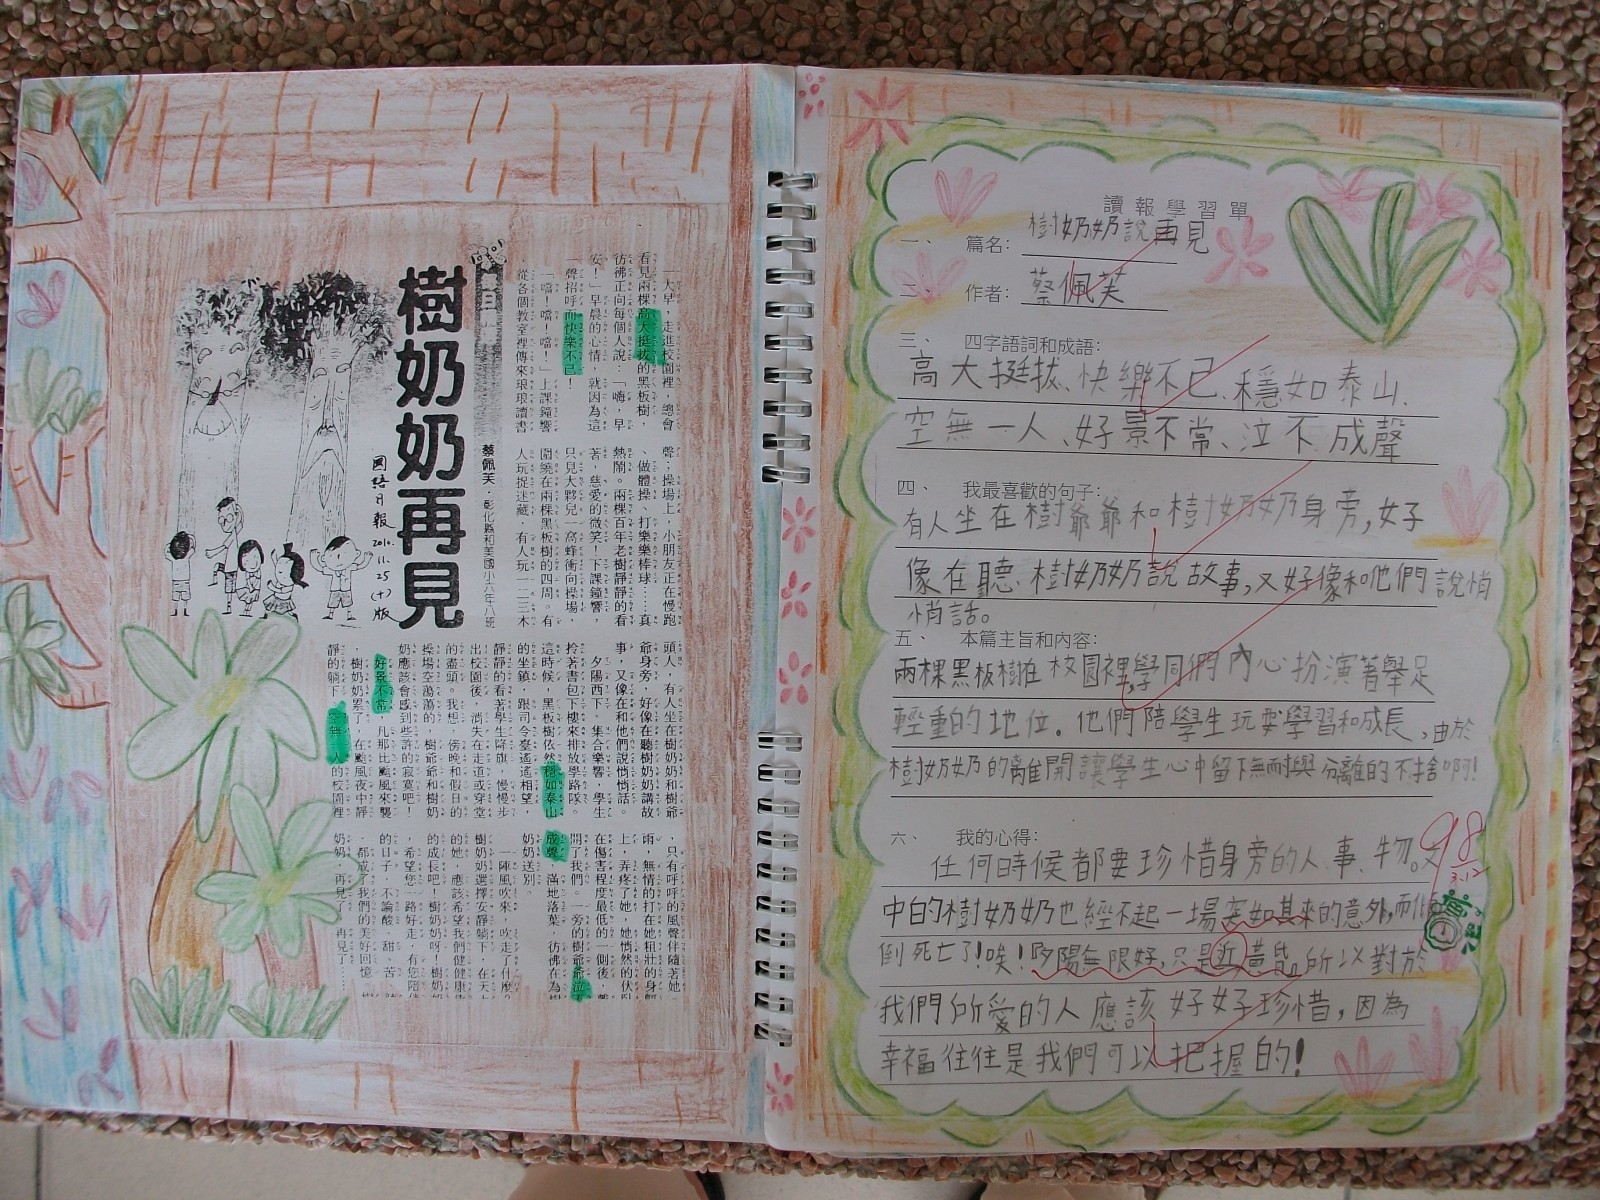 樹奶奶再見
蔡佩芙．彰化縣和美國小六年八班
國語日報 2010.11.25(十)版
一大早，走進校園裡，總會
看見兩棵高大挺拔的黑板樹，
彷彿正向每個人說：「嗨，早
安！」早晨的心情，就因為這
一聲招呼而快樂不已！
「噹！噹！噹！」上課鐘響
，從各個教室裡傳來琅琅讀書
聲；操場上，小朋友正在慢跑
、做體操、打樂樂棒球……真
熱鬧。兩棵百年老樹靜靜的看
著，慈愛的微笑！下課鐘響，
只見大夥兒一窩蜂衝向操場，
圍繞在兩棵黑板樹的四周。有
人玩捉迷藏，有人玩一二三木
頭人，有人坐在樹奶奶和樹爺
爺身旁，好像在聽樹奶奶講故
事，又像在和他們說悄悄話。
夕陽西下，集合樂響，學生
拎著書包下樓來排放學路隊。
這時候，黑板樹依然穩如泰山
的坐鎮，跟司令臺遙遙相望，
靜靜的看著學生降旗，慢慢步
出校園後，消失在走道或穿堂
的盡頭。我想，傍晚和假日的
操場空蕩蕩的，樹爺爺和樹奶
奶應該會感到些許的寂寞吧！
好景不常，凡那比颱風來襲
，樹奶奶累了，在颱風夜中靜
靜的躺下。空無一人的校園裡
，只有呼呼的風聲伴隨著她
雨，無情的打在她粗壯的身軀
上，弄疼了她，她悄然的伏臥
在傷害程度最低的一側後，離
開了我們。一旁的樹爺爺泣不
成聲，滿地落葉，彷彿在為樹
奶奶送別。
一陣風吹來，吹走了什麼？
樹奶奶選擇安靜躺下，在天上
的她，應該希望我們健健康康
的成長吧！樹奶奶呀！樹奶奶
，希望您一路好走，有您陪伴
的日子，不論酸、甜、苦、
，都成了我們的美好回憶
奶奶，再見了，再見了……
讀報學習單
一、 篇名：樹奶奶說再見
二、 作者：蔡佩芙
三、 四字語詞和成語：
高大挺拔、快樂不已、穩如泰山、
空無一人、好景不常、泣不成聲
四、 我最喜歡的句子：
有人坐在樹爺爺和樹奶奶身旁，好
像在聽樹奶奶說故事，又好像和他們說悄
悄話。
五、 本篇主旨和內容：
兩棵黑板樹在校園裡，學同們內心扮演著舉足
輕重的地位。他們陪學生玩耍學習和成長，由於
樹奶奶的離開讓學生心中留下無耐與分離的不捨啊！
六、 我的心得：
任何時候都要珍惜身旁的人、事、物。文
中的樹奶奶也經不起一場突如其來的意外，而
倒死亡了！唉！夕陽無限好，只是近黃昏。所以對於
我們所愛的人應該好好珍惜，因為
幸福往往是我們可以把握的！
98
3.12